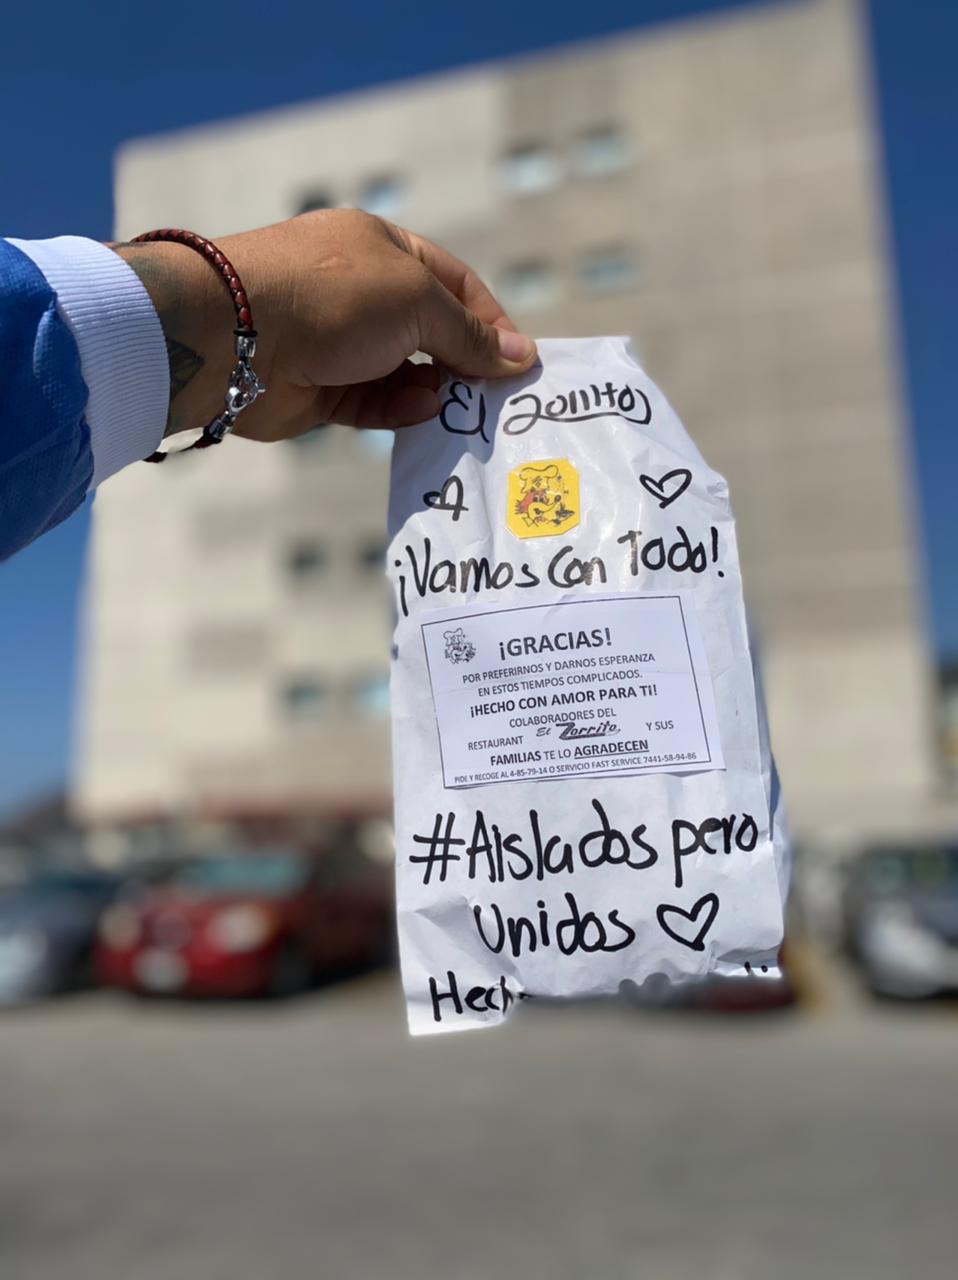 El Zorrito
¡Vamos Con Todo!
¡GRACIAS!
POR PREFERIRNOS Y DARNOS ESPERANZA
EN ESTOS TIEMPOS COMPLICADOS.
¡HECHO CON AMOR PARA TI!
COLABORADORES DEL
RESTAURANT El Zorrito Y SUS
FAMILIAS TE LO AGRADECEN
PIDE Y RECOGE AL 4-85-79-14 O SERVICIO FAST SERVICE 7441-58-94-86
#Aislados pero
Unidos